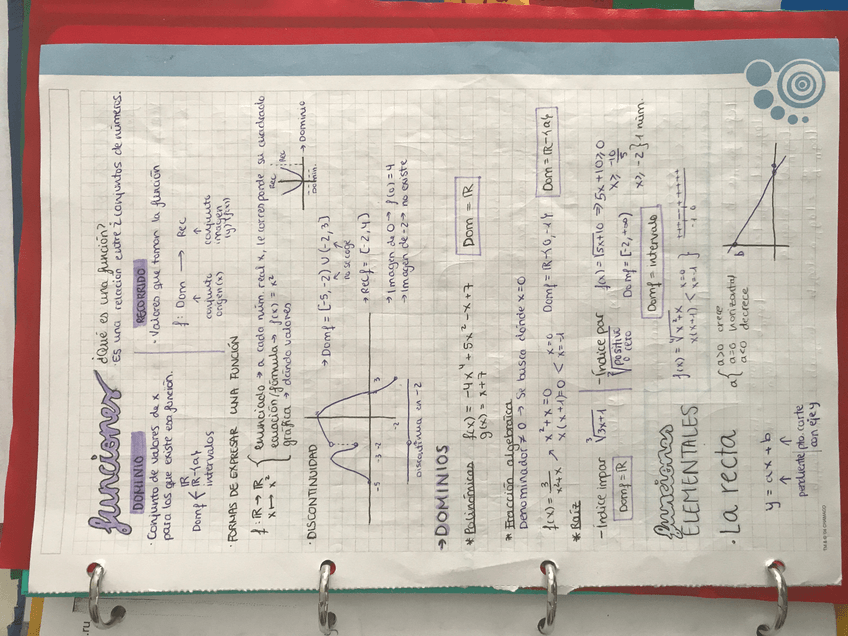 funciones
¿Qué es una función?
· Es una relación entre 2 conjuntos de números.
DOMINIO
· Conjunto de valores de x
para los que existe esa función.
Domf < ℝ
ℝ-{a}
intervalos
RECORRIDO
· Valores que toman la función
f: Dom → Rec
↑ ↑
conjunto conjunto
origen(x) imagen
(y)(f(x))
· FORMAS DE EXPRESAR UNA FUNCIÓN
f: ℝ → ℝ
x ↦ x²
enunciado → a cada núm. real x, le corresponde su cuadrado
ecuación/fórmula → f(x) = x²
gráfica → dando valores
Rec
Rec
Domin.
→ Dominio
· DISCONTINUIDAD
-5 -3 -2 3
-2
Discontinua en -2
→ Domf = [-5, -2) ∪ (-2, 3]
no se coge
→ Recf = [-2, 4)
→ Imagen de 0 → f(0) = 4
→ Imagen de -2 → no existe
→ DOMINIOS
* Polinómicas f(x) = -4x⁴ + 5x² - x + 7
g(x) = x + 7
Dom = ℝ
* Fracción algebraica
Denominador ≠ 0 → Se busca dónde x=0
f(x) = 3/x²+x ↗ x² + x = 0
x(x+1) = 0 < x=0
x=-1
Domf = ℝ-{0,-1}
Dom = ℝ-{a}
* Raíz
- Índice impar ∛3x+1
Domf = ℝ
- Índice par
√positivo o cero
f(x) = √5x+10 ⇒ 5x + 10 ≥ 0
x ≥ -10/5
x ≥ -2 } 1 núm.
Domf = [-2, +∞)
Domf = intervalo
f(x) = √x²+x
x(x+1) < x=0
x=-1 }
-1 0
funciones
ELEMENTALES
· La recta
y = ax + b
↑ ↑
pendiente pto. corte
con eje y
a { a>0 crece
a=0 horizontal
a<0 decrece
b